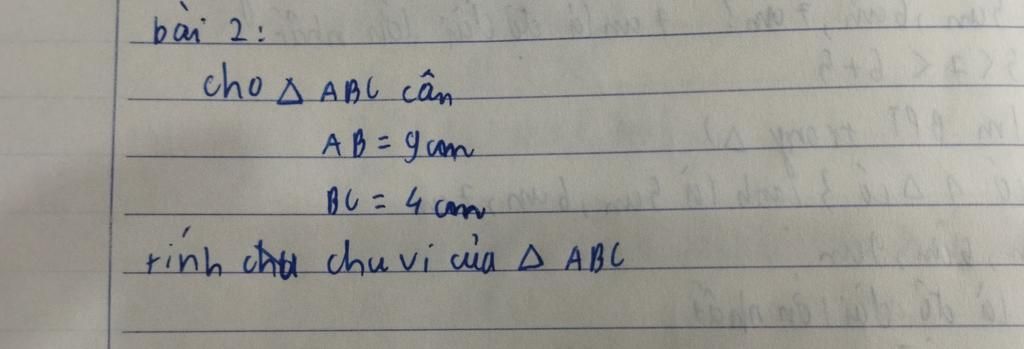 bài 2:
cho △ ABC cân
AB = 9 cm
BC = 4 cm
tính chu vi của △ ABC